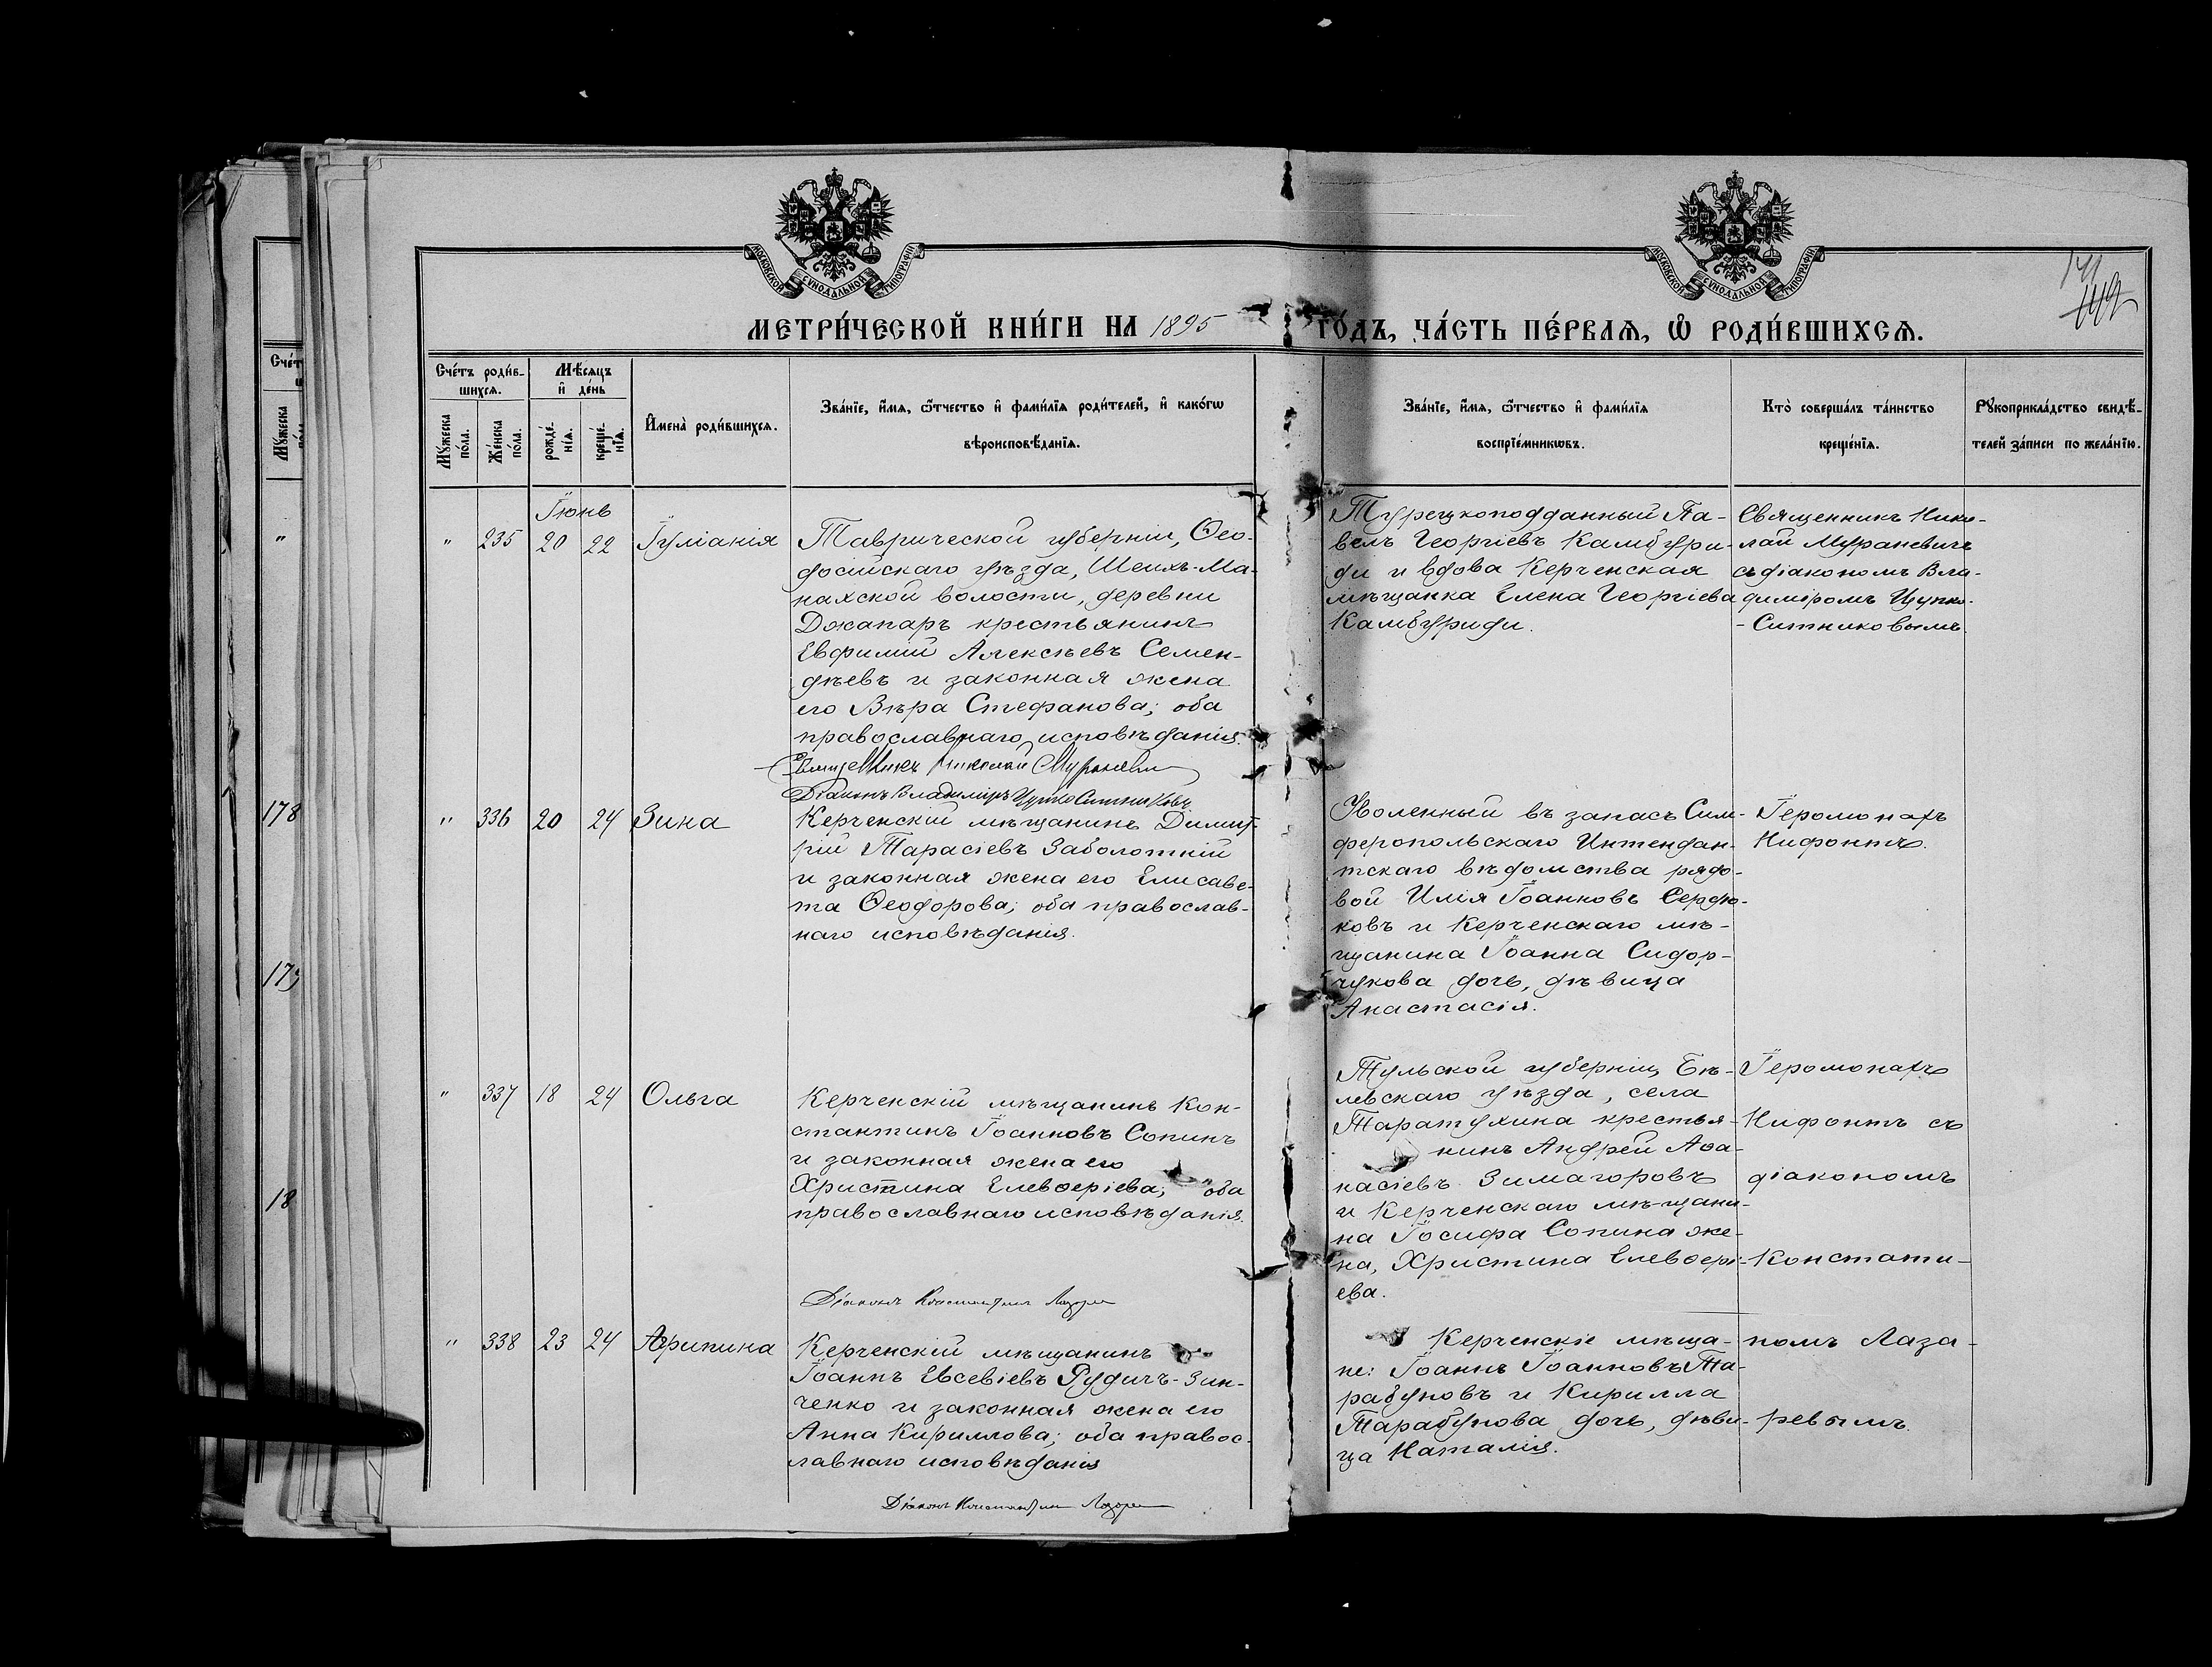 МОСКОВСКОЙ СѴНОДАЛЬНОЙ ТИПОГРАФІИ
МОСКОВСКОЙ СѴНОДАЛЬНОЙ ТИПОГРАФІИ
141
142
МЕТРИ́ЧЕСКОЙ КНИ́ГИ НА 1895 ГО́ДЪ, ЧА́СТЬ ПЕ́РВАЯ, Ѡ҆ РОДИ́ВШИХСѦ.
Сче́тъ роди́в-
шихсѧ.
Мꙋ́жеска
по́ла.
Же́нска
по́ла.
Мѣ́сѧцъ
и҆ де́нь
рожде́-
нїѧ.
креще́-
нїѧ.
И҆мена̀ роди́вшихсѧ.
Зва́нїе, и҆́мѧ, ѻ҆́тчество и҆ фами́лїѧ роди́телей, и҆ како́гѡ
вѣроисповѣ́данїѧ.
Зва́нїе, и҆́мѧ, ѻ҆́тчество и҆ фами́лїѧ
воспрїе́мникѡвъ.
Кто̀ соверша́лъ та́инство
креще́нїѧ.
Рꙋкоприкла́дство свидѣ́-
телей за́писи по жела́нїю.
Іюнь
" 235 20 22 Іуліанія
Таврической губерніи, Ѳео-
досійскаго уѣзда, Шеихъ-Ма-
нахской волости, деревни
Джапаръ крестьянинъ
Евфимій Алексѣевъ Семен-
дѣевъ и законная жена
его Вѣра Стефанова; оба
православнаго исповѣданія.
Священникъ Николай Мураневич
Діаконъ Владиміръ Цупко-Ситниковъ
Турецкоподданный Па-
велъ Георгіевъ Камбури-
ди и вдова Керченская
мѣщанка Елена Георгіева
Камбуриди.
Священникъ Нико-
лай Мураневичъ
съ діакономъ Вла-
диміромъ Цупко-
-Ситниковымъ.
" 336 20 24 Зина
Керченскій мѣщанинъ Димит-
рій Тарасіевъ Заболотній
и законная жена его Елисаве-
та Ѳеодорова; оба православ-
наго исповѣданія.
Уволенный въ запасъ Сим-
феропольскаго Интендан-
тскаго вѣдомства рядо-
вой Илія Іоанновъ Сердю-
ковъ и Керченскаго мѣ-
щанина Іоанна Сидор-
чукова дочь, дѣвица
Анастасія.
Іеромонахъ
Нифонтъ.
" 337 18 24 Ольга
Керченскій мѣщанинъ Кон-
стантинъ Іоанновъ Сопинъ
и законная жена его
Христина Елевѳеріева; оба
православнаго исповѣданія.
Діаконъ Константин Лазаре
Тульской губерніи, Бѣ-
левскаго уѣзда, села
Таратухина крестья-
нинъ Андрей Аѳа-
насіевъ Зимагоровъ
и Керченскаго мѣщани-
на Іосифа Сопина же-
на, Христина Елевѳері-
ева.
Іеромонахъ
Нифонтъ съ
діакономъ
Констати-
номъ Лаза-
ревымъ.
" 338 23 24 Агрипина
Керченскій мѣщанинъ
Іоаннъ Евсевіевъ Рудичъ-Зин-
ченко и законная жена его
Анна Кириллова; оба правос-
лавнаго исповѣданія
Діаконъ Константин Лазаре
Керченскіе мѣща-
не: Іоаннъ Іоанновъ Та-
рабуновъ и Кирилла
Тарабунова дочь, дѣви-
ца Наталія.
Сче́т
Мꙋ́жеска
"
178
179
18